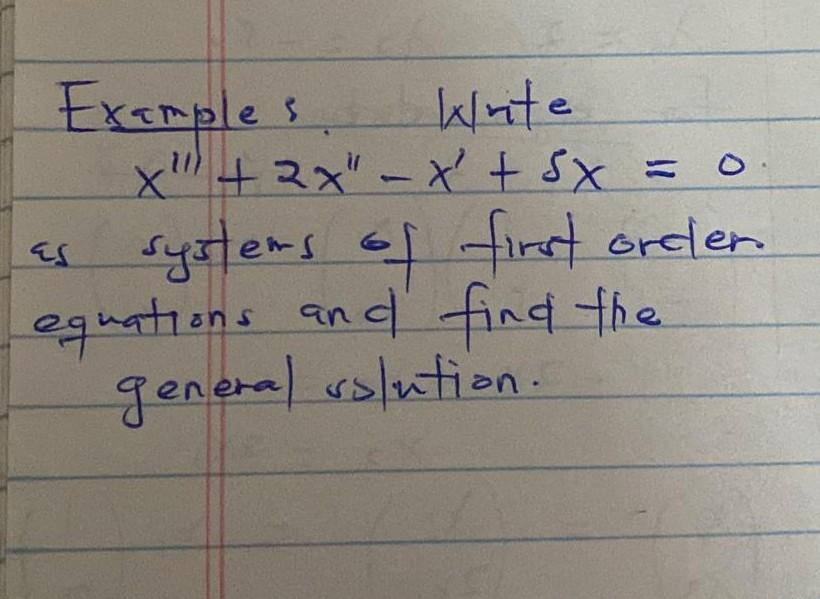 Examples. Write
x''' + 2x'' - x' + 5x = 0.
as systems of first order
equations and find the
general solution.